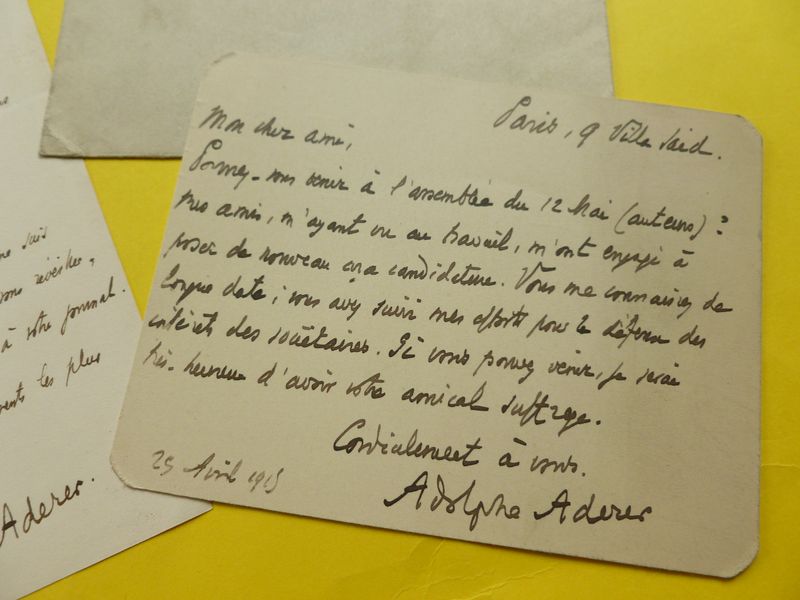 Paris, 9 Villa Saïd.
Mon cher ami,
Pouvez-vous venir à l'assemblée du 12 Mai (auteurs) ?
Mes amis, m'ayant vu au travail, m'ont engagé à
poser de nouveau ma candidature. Vous me connaissez de
longue date ; vous avez suivi mes efforts pour la défense des
intérêts des sociétaires. Si vous pouvez venir, je serai
très-heureux d'avoir votre amical suffrage.
Cordialement à vous.
25 Avril 1915
Adolphe Aderer
suis
vous
à votre journal.
les plus
Aderer.